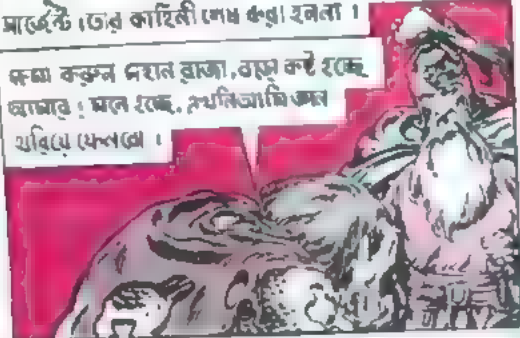 সার্জেন্ট । তোর কাহিনী শেষ করা হলনা ।
ক্ষমা করুন মহান রাজা, বড়ো কষ্ট হচ্ছে
আমার । মনে হচ্ছে, এখনি আমি জ্ঞান
হারিয়ে ফেলবো ।